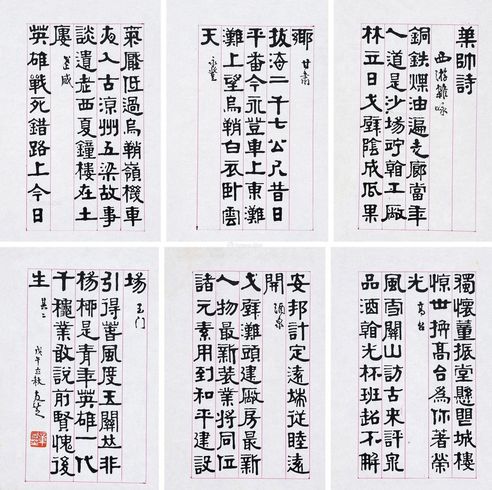 葉帥詩
西游雜咏
銅鉄煤油遍走廊當年
人道是沙場工廠
林立日戈壁陰成瓜果
鄉 甘肅
拔海二千七公尺昔日
平番今永登車上東灘
灘上望烏鞘白衣卧雲
天 永登
低過烏鞘嶺機車
友入古涼州五梁故事
談遺老西夏鐘樓在土
武威
英雄戰死錯路上今日
獨懷董振堂懸城樓
惊世高台為你著榮
光 高台
風雪關山訪古來評泉
品酒光杯班超不解
安邦計定遠端從睦遠
開 酒泉
戈壁灘頭建厰房最新
人物最新業將同位
諸元素用到和平建設
場 玉门
引得春風度玉關並非
楊柳是青年英雄一代
千穐業敢說前賢愧後
生 其二
戊午立秋